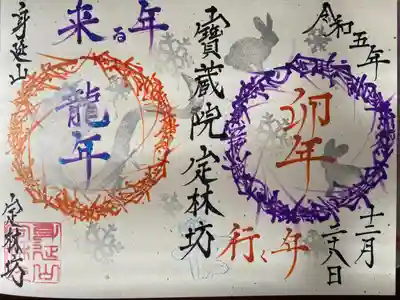 令和五年
卯年
行く年
十二月
二十八日
宝蔵院定林坊
来る年
龍年
身延山
定林坊
身延山